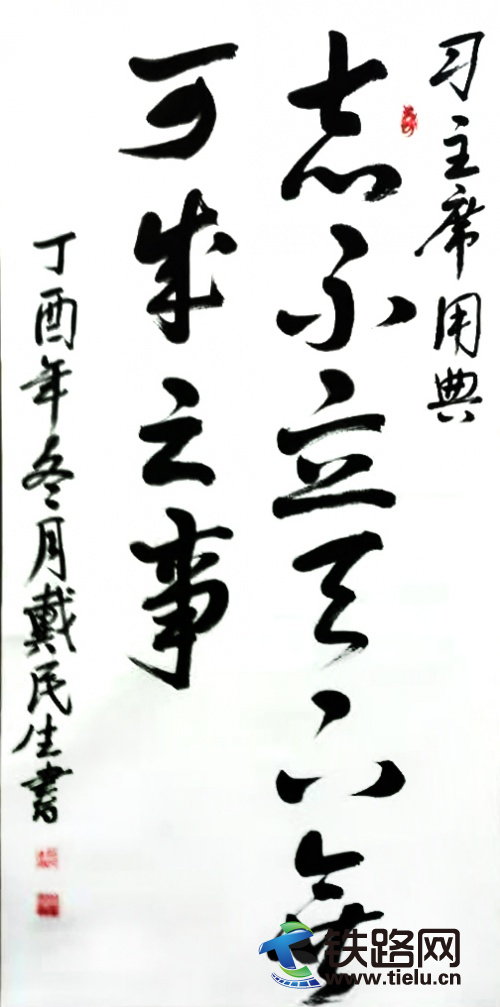 习主席用典
志不立天下无
可成之事
丁酉年冬月戴民生书
铁路网
www.tielu.cn